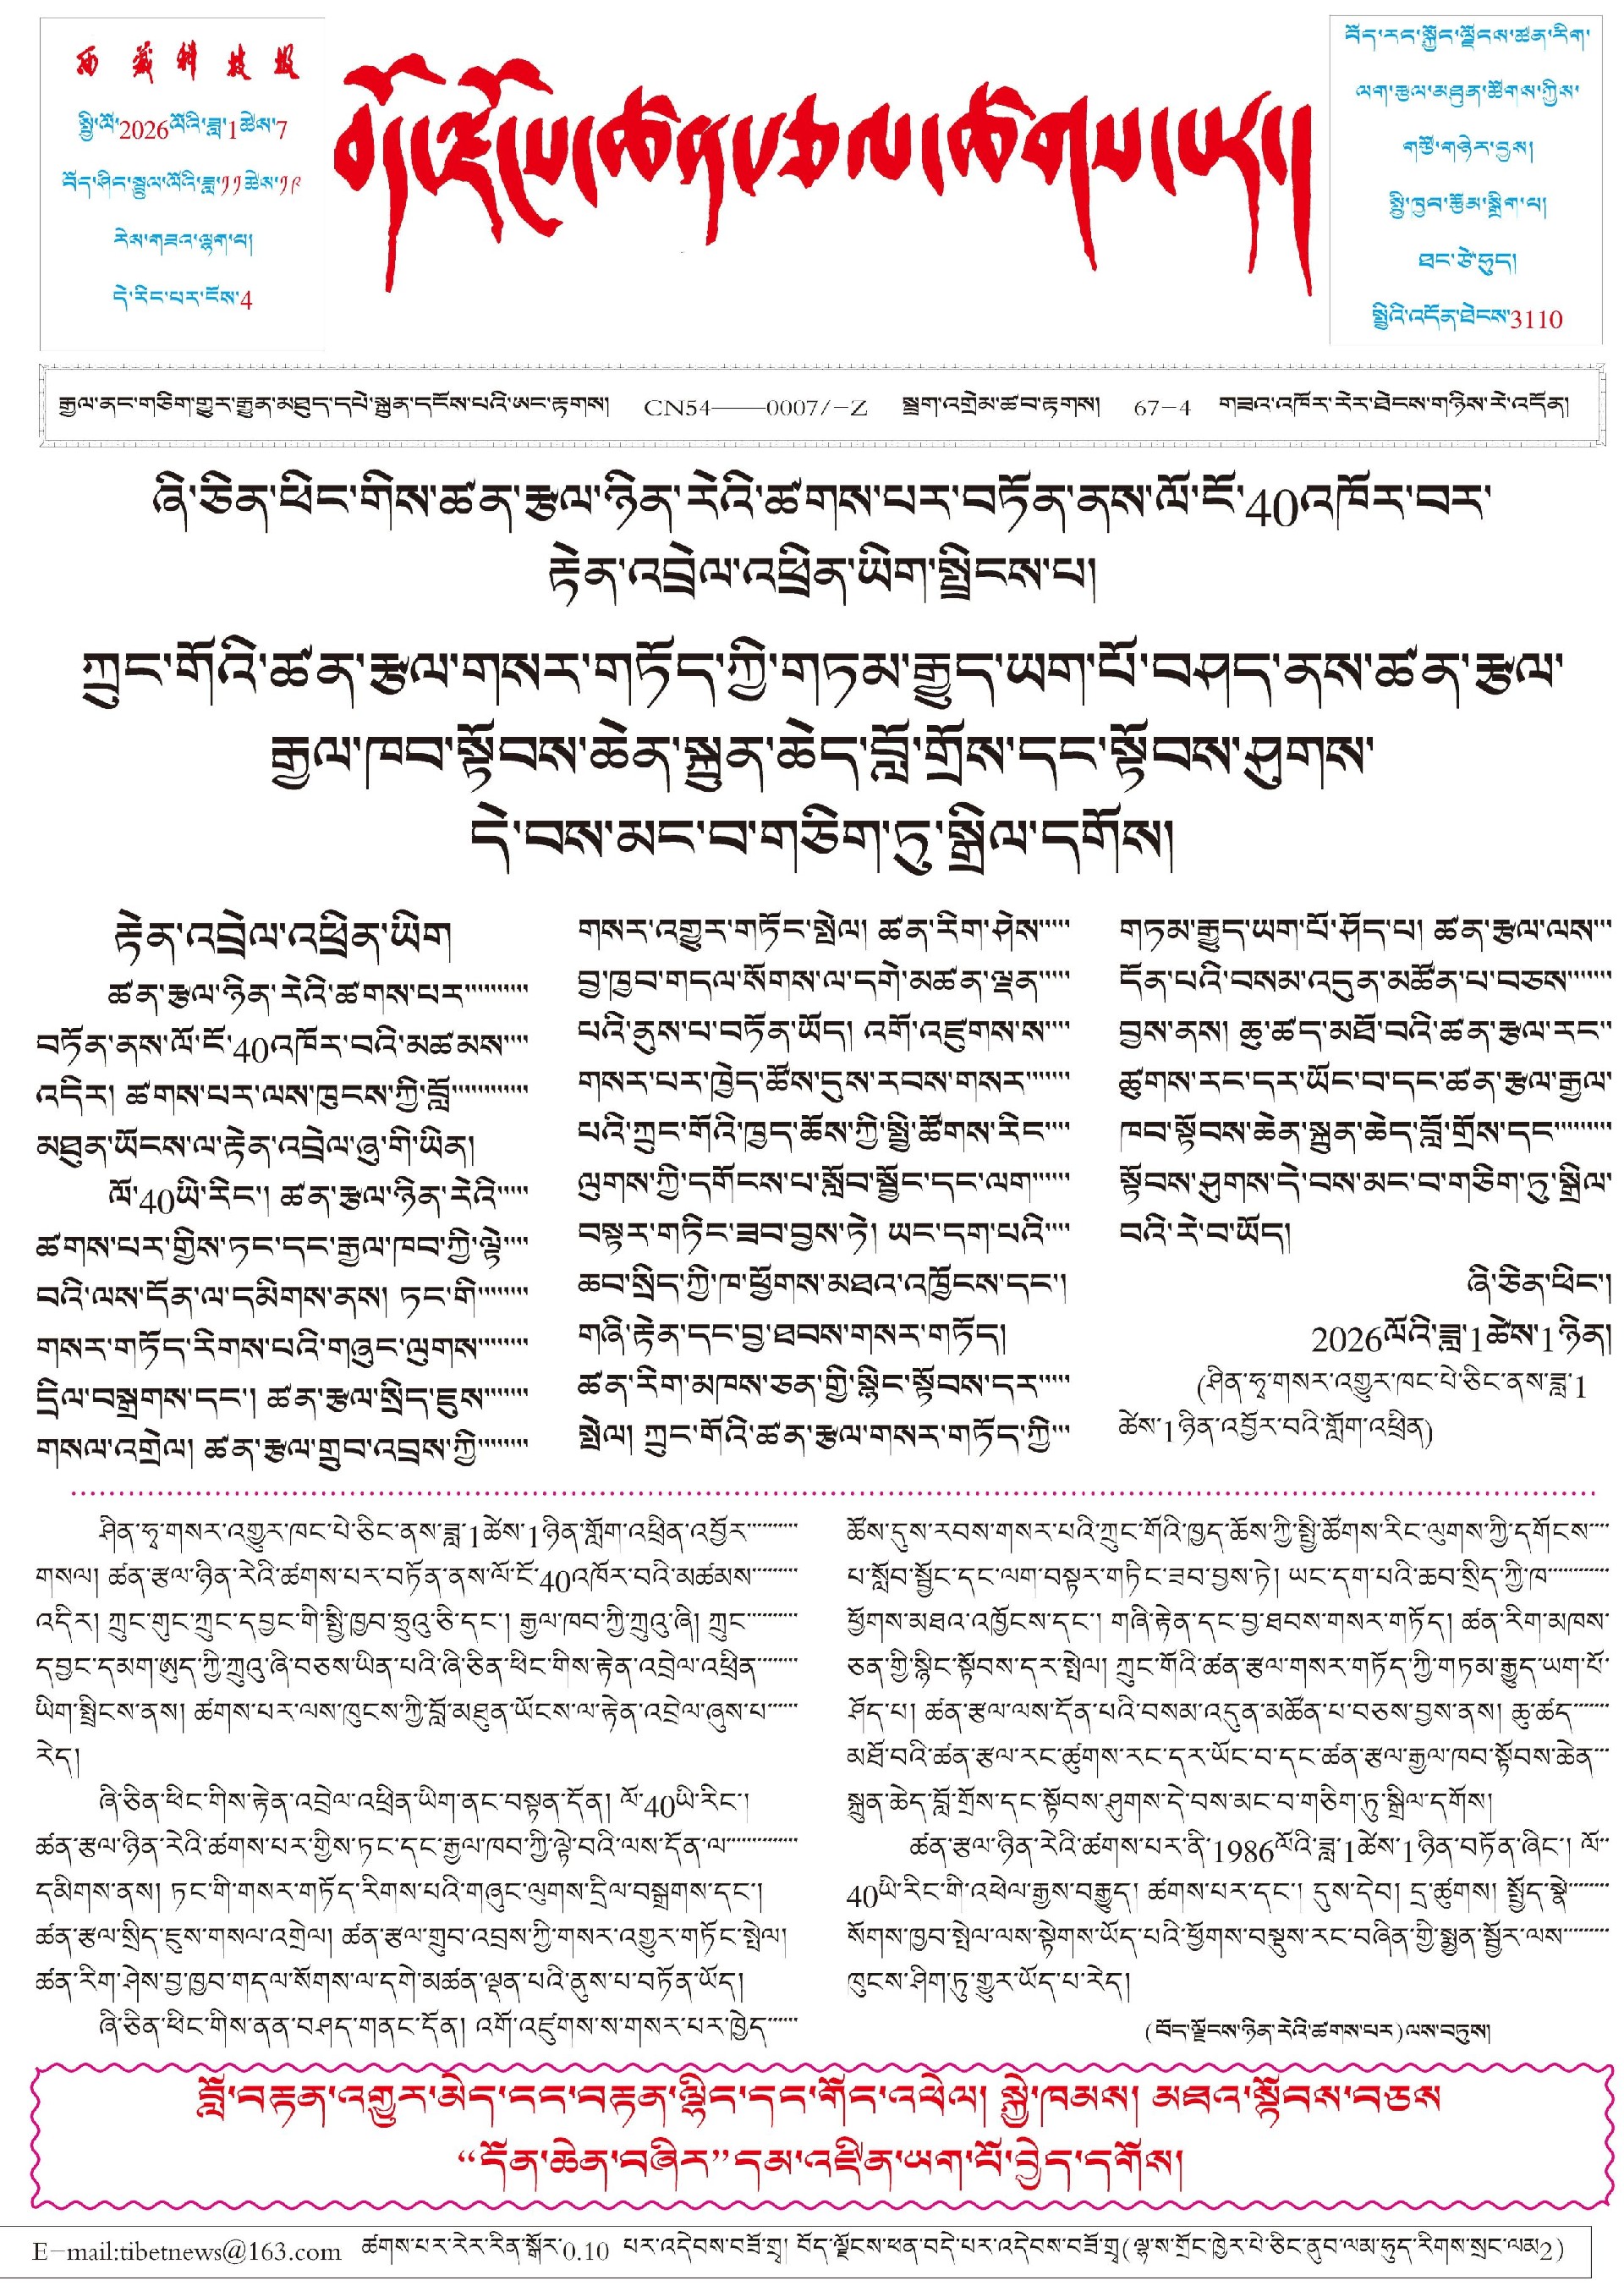 西藏科技报
སྤྱི་ལོ་2026ལོའི་ཟླ་1ཚེས་7
བོད་ཤིང་སྦྲུལ་ལོའི་ཟླ་༡༡ཚེས་༡༩
རེས་གཟའ་ལྷག་པ།
དེ་རིང་པར་ངོས་4
བོད་རང་སྐྱོང་ལྗོངས་ཚན་རིག་
ལག་རྩལ་མཐུན་ཚོགས་ཀྱིས་
གཙོ་གཉེར་བྱས།
སྤྱི་ཁྱབ་རྩོམ་སྒྲིག་པ།
ཐང་ཙེ་ཧུད།
སྤྱིའི་འདོན་ཐེངས་3110
རྒྱལ་ནང་གཅིག་གྱུར་རྒྱུན་མཐུད་དཔེ་སྐྲུན་དངོས་པའི་ཨང་རྟགས། CN54——0007/-Z སྦྲག་འགྲེམ་ཚབ་རྟགས། 67-4 གཟའ་འཁོར་རེར་ཐེངས་གཉིས་རེ་འདོན།
ཞི་ཅིན་ཕིང་གིས་ཚན་རྩལ་ཉིན་རེའི་ཚགས་པར་བཏོན་ནས་ལོ་ངོ་40འཁོར་བར་
རྟེན་འབྲེལ་འཕྲིན་ཡིག་སྤྲིངས་པ།
ཀྲུང་གོའི་ཚན་རྩལ་གསར་གཏོད་ཀྱི་གཏམ་རྒྱུད་ཡག་པོ་བཤད་ནས་ཚན་རྩལ་
རྒྱལ་ཁབ་སྟོབས་ཆེན་སྐྲུན་ཆེད་བློ་གྲོས་དང་སྟོབས་ཤུགས་
དེ་བས་མང་བ་གཅིག་ཏུ་སྒྲིལ་དགོས།
རྟེན་འབྲེལ་འཕྲིན་ཡིག
ཚན་རྩལ་ཉིན་རེའི་ཚགས་པར
བཏོན་ནས་ལོ་ངོ་40འཁོར་བའི་མཚམས
འདིར། ཚགས་པར་ལས་ཁུངས་ཀྱི་བློ
མཐུན་ཡོངས་ལ་རྟེན་འབྲེལ་ཞུ་གི་ཡིན།
ལོ་40ཡི་རིང་། ཚན་རྩལ་ཉིན་རེའི
ཚགས་པར་གྱིས་ཏང་དང་རྒྱལ་ཁབ་ཀྱི་ལྟེ
བའི་ལས་དོན་ལ་དམིགས་ནས། ཏང་གི
གསར་གཏོད་རིགས་པའི་གཞུང་ལུགས
དྲིལ་བསྒྲགས་དང་། ཚན་རྩལ་སྲིད་ཇུས
གསལ་འགྲེལ། ཚན་རྩལ་གྲུབ་འབྲས་ཀྱི
གསར་འགྱུར་གཏོང་སྤེལ། ཚན་རིག་ཤེས
བྱ་ཁྱབ་གདལ་སོགས་ལ་དགེ་མཚན་ལྡན
པའི་ནུས་པ་བཏོན་ཡོད། འགོ་འཛུགས་ས
གསར་པར་ཁྱེད་ཚོས་དུས་རབས་གསར
པའི་ཀྲུང་གོའི་ཁྱད་ཆོས་ཀྱི་སྤྱི་ཚོགས་རིང
ལུགས་ཀྱི་དགོངས་པ་སློབ་སྦྱོང་དང་ལག
བསྟར་གཏིང་ཟབ་བྱས་ཏེ། ཡང་དག་པའི
ཆབ་སྲིད་ཀྱི་ཁ་ཕྱོགས་མཐའ་འཁྱོངས་དང་།
གཞི་རྟེན་དང་བྱ་ཐབས་གསར་གཏོད།
ཚན་རིག་མཁས་ཅན་གྱི་སྙིང་སྟོབས་དར
སྤེལ། ཀྲུང་གོའི་ཚན་རྩལ་གསར་གཏོད་ཀྱི
གཏམ་རྒྱུད་ཡག་པོ་ཤོད་པ། ཚན་རྩལ་ལས
དོན་པའི་བསམ་འདུན་མཚོན་པ་བཅས
བྱས་ནས། ཆུ་ཚད་མཐོ་བའི་ཚན་རྩལ་རང
ཚུགས་རང་དར་ཡོང་བ་དང་ཚན་རྩལ་རྒྱལ་
ཁབ་སྟོབས་ཆེན་སྐྲུན་ཆེད་བློ་གྲོས་དང
སྟོབས་ཤུགས་དེ་བས་མང་བ་གཅིག་ཏུ་སྒྲིལ་
བའི་རེ་བ་ཡོད།
ཞི་ཅིན་ཕིང་།
2026ལོའི་ཟླ་1ཚེས་1ཉིན།
(ཤིན་ཧྭ་གསར་འགྱུར་ཁང་པེ་ཅིང་ནས་ཟླ་1
ཚེས་1ཉིན་འབྱོར་བའི་གློག་འཕྲིན)
ཤིན་ཧྭ་གསར་འགྱུར་ཁང་པེ་ཅིང་ནས་ཟླ་1ཚེས་1ཉིན་གློག་འཕྲིན་འབྱོར
གསལ། ཚན་རྩལ་ཉིན་རེའི་ཚགས་པར་བཏོན་ནས་ལོ་ངོ་40འཁོར་བའི་མཚམས
འདིར། ཀྲུང་གུང་ཀྲུང་དབྱང་གི་སྤྱི་ཁྱབ་ཧྲུའུ་ཅི་དང་། རྒྱལ་ཁབ་ཀྱི་ཀྲུའུ་ཞི། ཀྲུང
དབྱང་དམག་ཨུད་ཀྱི་ཀྲུའུ་ཞི་བཅས་ཡིན་པའི་ཞི་ཅིན་ཕིང་གིས་རྟེན་འབྲེལ་འཕྲིན
ཡིག་སྤྲིངས་ནས། ཚགས་པར་ལས་ཁུངས་ཀྱི་བློ་མཐུན་ཡོངས་ལ་རྟེན་འབྲེལ་ཞུས་པ
རེད།
ཞི་ཅིན་ཕིང་གིས་རྟེན་འབྲེལ་འཕྲིན་ཡིག་ནང་བསྟན་དོན། ལོ་40ཡི་རིང་།
ཚན་རྩལ་ཉིན་རེའི་ཚགས་པར་གྱིས་ཏང་དང་རྒྱལ་ཁབ་ཀྱི་ལྟེ་བའི་ལས་དོན་ལ
དམིགས་ནས། ཏང་གི་གསར་གཏོད་རིགས་པའི་གཞུང་ལུགས་དྲིལ་བསྒྲགས་དང་།
ཚན་རྩལ་སྲིད་ཇུས་གསལ་འགྲེལ། ཚན་རྩལ་གྲུབ་འབྲས་ཀྱི་གསར་འགྱུར་གཏོང་སྤེལ།
ཚན་རིག་ཤེས་བྱ་ཁྱབ་གདལ་སོགས་ལ་དགེ་མཚན་ལྡན་པའི་ནུས་པ་བཏོན་ཡོད།
ཞི་ཅིན་ཕིང་གིས་ནན་བཤད་གནང་དོན། འགོ་འཛུགས་ས་གསར་པར་ཁྱེད
ཚོས་དུས་རབས་གསར་པའི་ཀྲུང་གོའི་ཁྱད་ཆོས་ཀྱི་སྤྱི་ཚོགས་རིང་ལུགས་ཀྱི་དགོངས
པ་སློབ་སྦྱོང་དང་ལག་བསྟར་གཏིང་ཟབ་བྱས་ཏེ། ཡང་དག་པའི་ཆབ་སྲིད་ཀྱི་ཁ
ཕྱོགས་མཐའ་འཁྱོངས་དང་། གཞི་རྟེན་དང་བྱ་ཐབས་གསར་གཏོད། ཚན་རིག་མཁས་
ཅན་གྱི་སྙིང་སྟོབས་དར་སྤེལ། ཀྲུང་གོའི་ཚན་རྩལ་གསར་གཏོད་ཀྱི་གཏམ་རྒྱུད་ཡག་པོ་
ཤོད་པ། ཚན་རྩལ་ལས་དོན་པའི་བསམ་འདུན་མཚོན་པ་བཅས་བྱས་ནས། ཆུ་ཚད
མཐོ་བའི་ཚན་རྩལ་རང་ཚུགས་རང་དར་ཡོང་བ་དང་ཚན་རྩལ་རྒྱལ་ཁབ་སྟོབས་ཆེན
སྐྲུན་ཆེད་བློ་གྲོས་དང་སྟོབས་ཤུགས་དེ་བས་མང་བ་གཅིག་ཏུ་སྒྲིལ་དགོས།
ཚན་རྩལ་ཉིན་རེའི་ཚགས་པར་ནི་1986ལོའི་ཟླ་1ཚེས་1ཉིན་བཏོན་ཞིང་། ལོ
40ཡི་རིང་གི་འཕེལ་རྒྱས་བརྒྱུད། ཚགས་པར་དང་། དུས་དེབ། དྲ་ཚུགས། སྤྱོད་སྣེ
སོགས་ཁྱབ་སྤེལ་ལས་སྟེགས་ཡོད་པའི་ཕྱོགས་བསྡུས་རང་བཞིན་གྱི་སྨྱན་སྦྱོར་ལས
ཁུངས་ཤིག་ཏུ་གྱུར་ཡོད་པ་རེད།
(བོད་ལྗོངས་ཉིན་རེའི་ཚགས་པར)ལས་བཏུས།
བློ་བརྟན་འགྱུར་མེད་ངང་བརྟན་ལྷིང་དང་གོང་འཕེལ། སྐྱེ་ཁམས། མཐའ་སྟོབས་བཅས
“དོན་ཆེན་བཞིར”དམ་འཛིན་ཡག་པོ་བྱེད་དགོས།
E-mail:tibetnews@163.com ཚགས་པར་རེར་རིན་སྒོར་0.10 པར་འདེབས་བཟོ་གྲྭ། བོད་ལྗོངས་ཕན་བདེ་པར་འདེབས་བཟོ་གྲྭ(ལྷ་ས་གྲོང་ཁྱེར་པེ་ཅིང་ནུབ་ལམ་ཧུད་རིགས་སྲང་ལམ2)